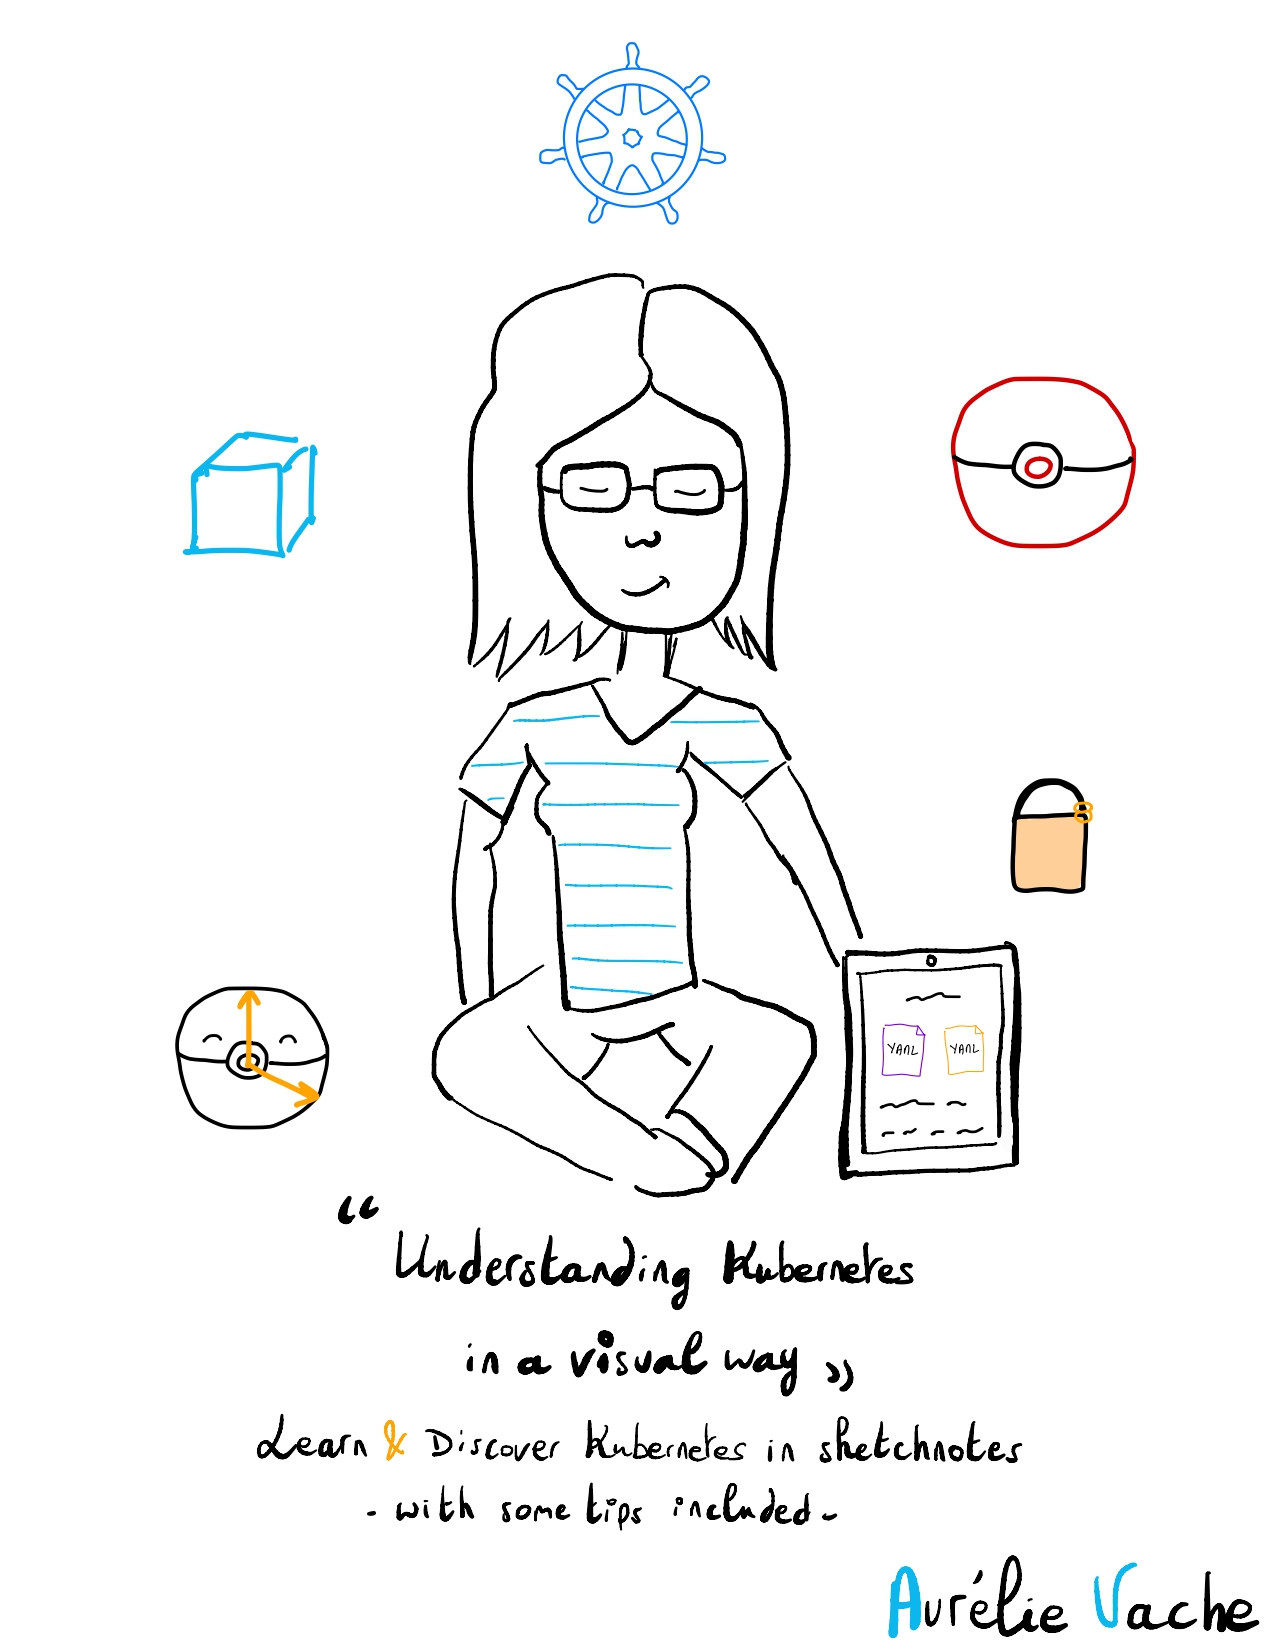 YAML YAML
“ Understanding Kubernetes
in a visual way ”
Learn & Discover Kubernetes in sketchnotes
- with some tips included -
Aurélie Vache